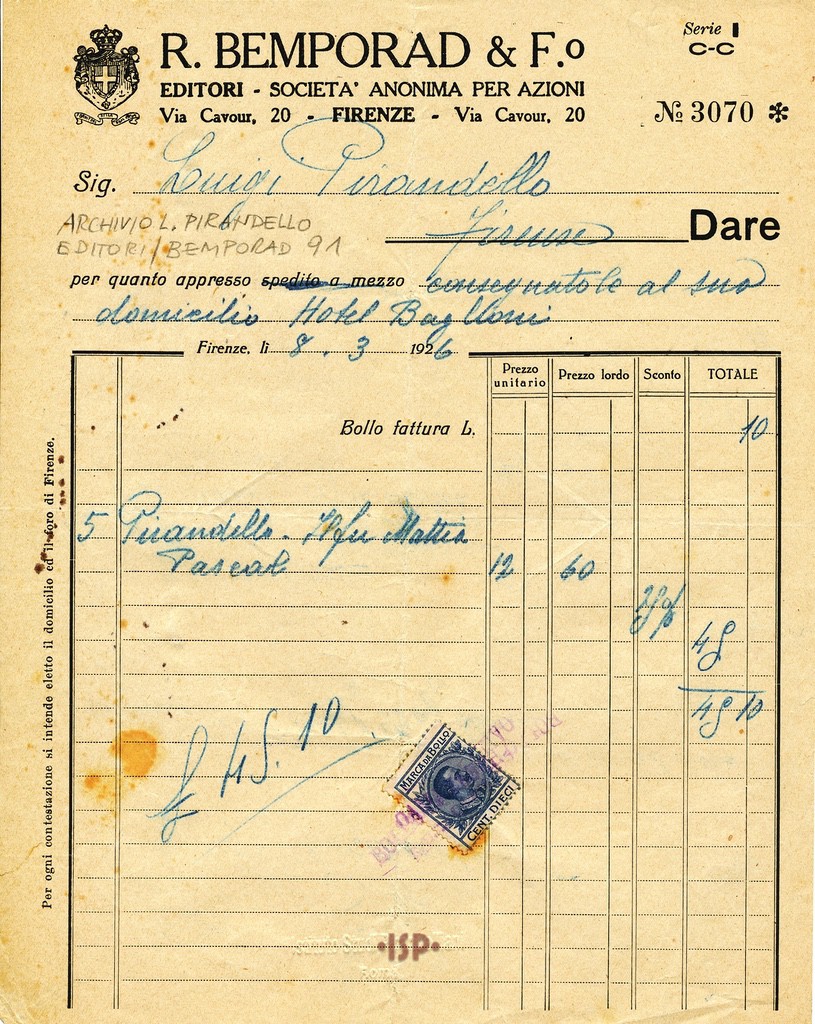 R. BEMPORAD & F.o
Serie I
C-C
EDITORI - SOCIETA' ANONIMA PER AZIONI
Via Cavour, 20 - FIRENZE - Via Cavour, 20
№ 3070 *
Sig. Luigi Pirandello
ARCHIVIO L. PIRANDELLO
Firenze Dare
EDITORI/BEMPORAD 91
per quanto appresso spedito a mezzo consegnatole al suo
domicilio Hotel Baglioni
Firenze, lì 8.3 1926
Prezzo unitario Prezzo lordo Sconto TOTALE
Bollo fattura L. 10
5 Pirandello - Il fu Mattia
Pascal 12 60
25%
45
45 10
£ 45.10
MARCA DA BOLLO
CENT. DIECI
•ISP•
Per ogni contestazione si intende eletto il domicilio ed il foro di Firenze.